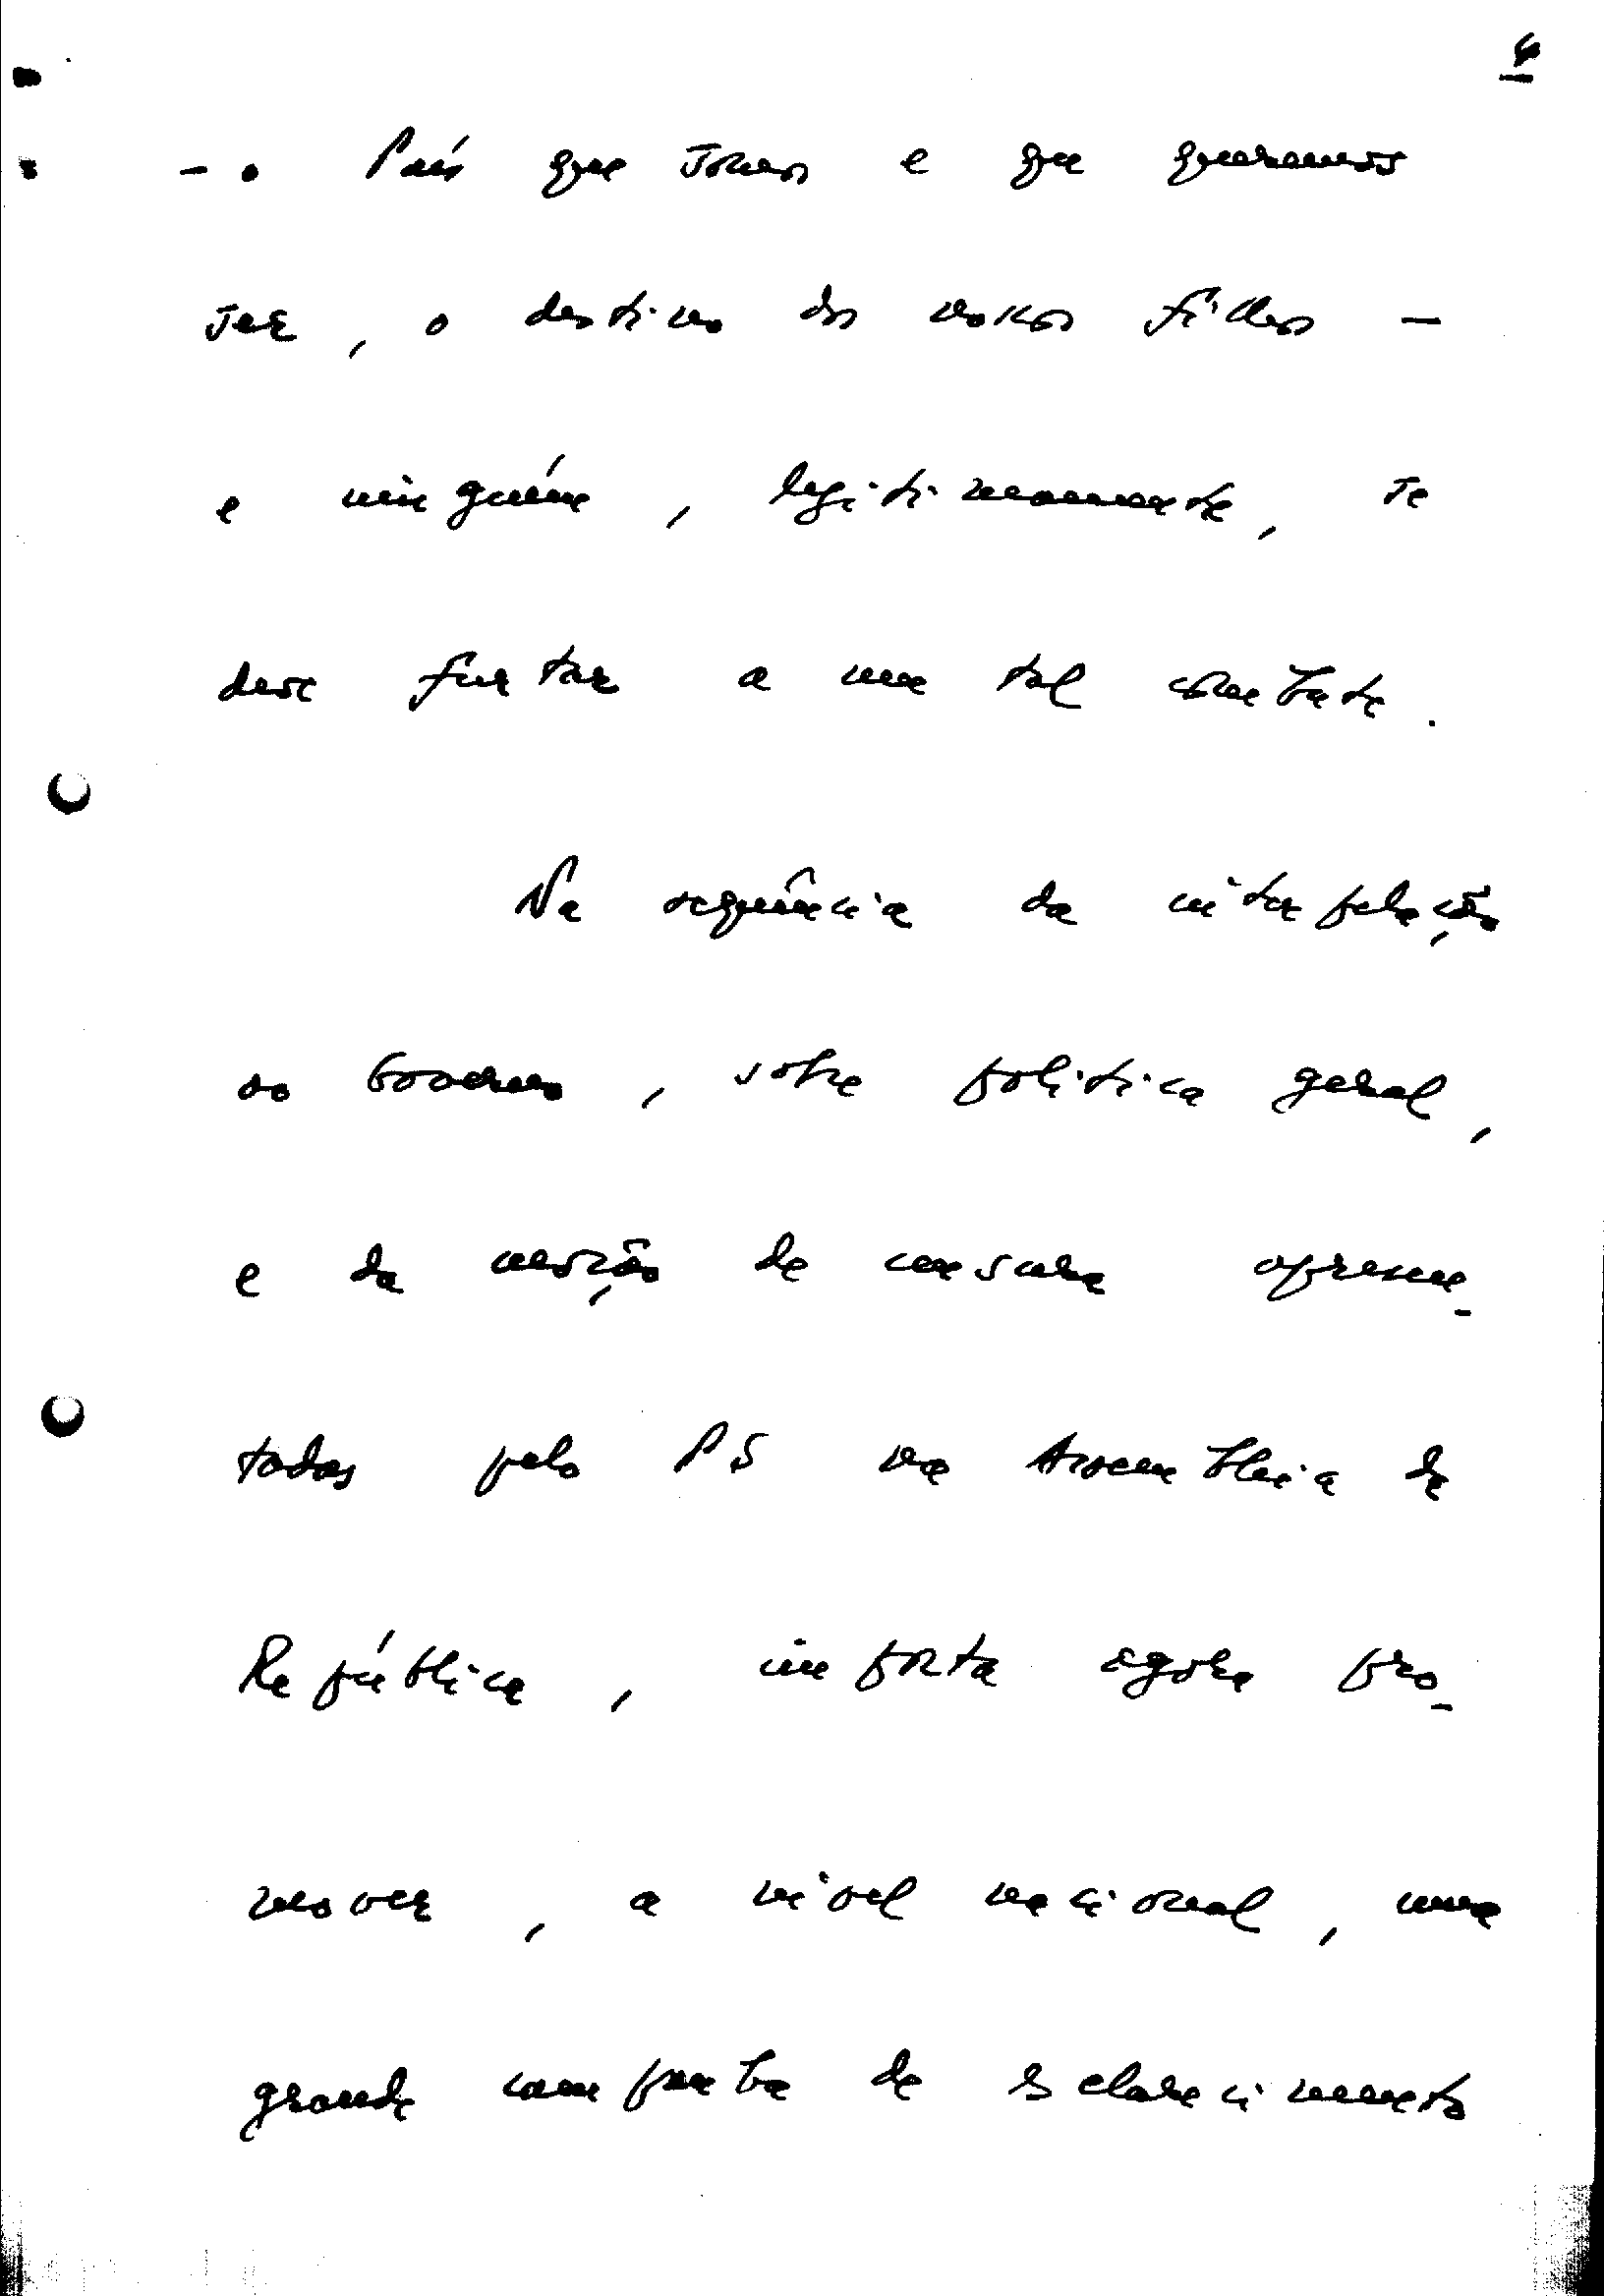 4
- o País que somos e que queremos
ser, o destino dos nossos filhos -
e ninguém, legitimamente, se
deve furtar a um tal combate.
Na sequência da interpelação
ao Governo, sobre política geral,
e da moção de censura apresen-
tadas pelo PS na Assembleia da
República, importa agora pro-
mover, a nível nacional, uma
grande campanha de esclarecimento